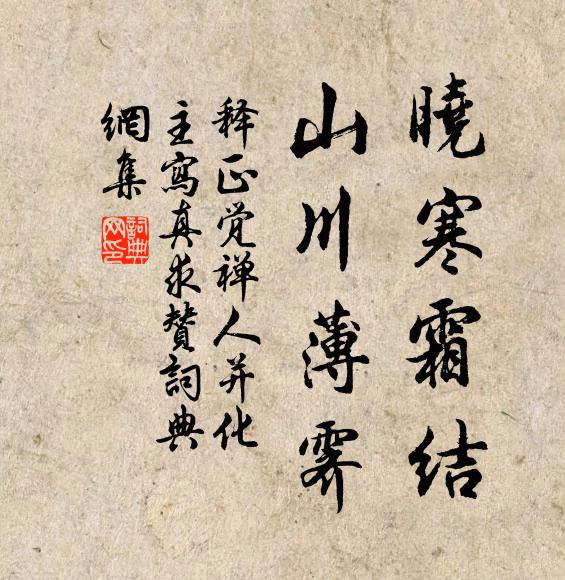 曉寒霜結
山川薄霁
释正觉禅人并化
主寫真求賛詞典
網集
詞典
网印